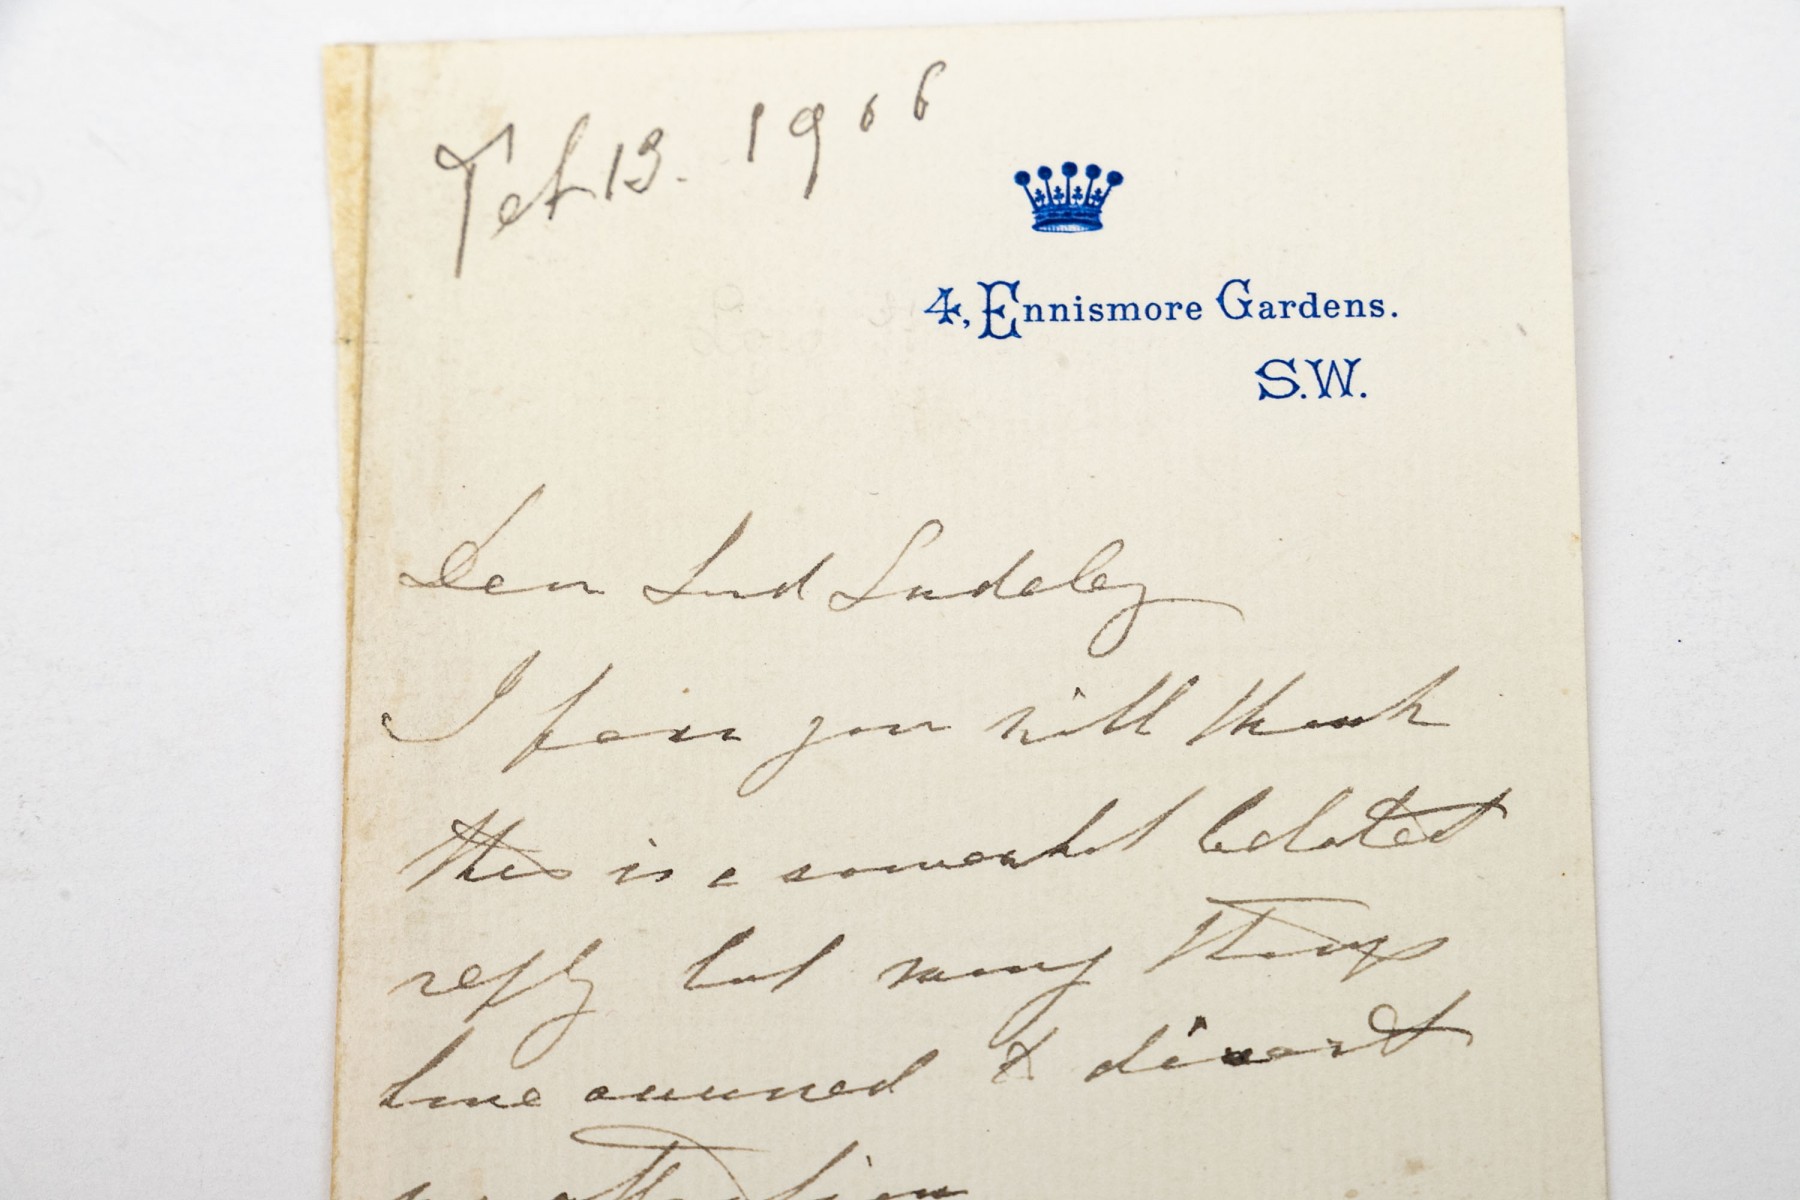 Feb 13. 1906
4, Ennismore Gardens.
S.W.
Dear Lord Sudeley
I fear you will think
this is a somewhat belated
reply but many things
have occurred to divert
my attention